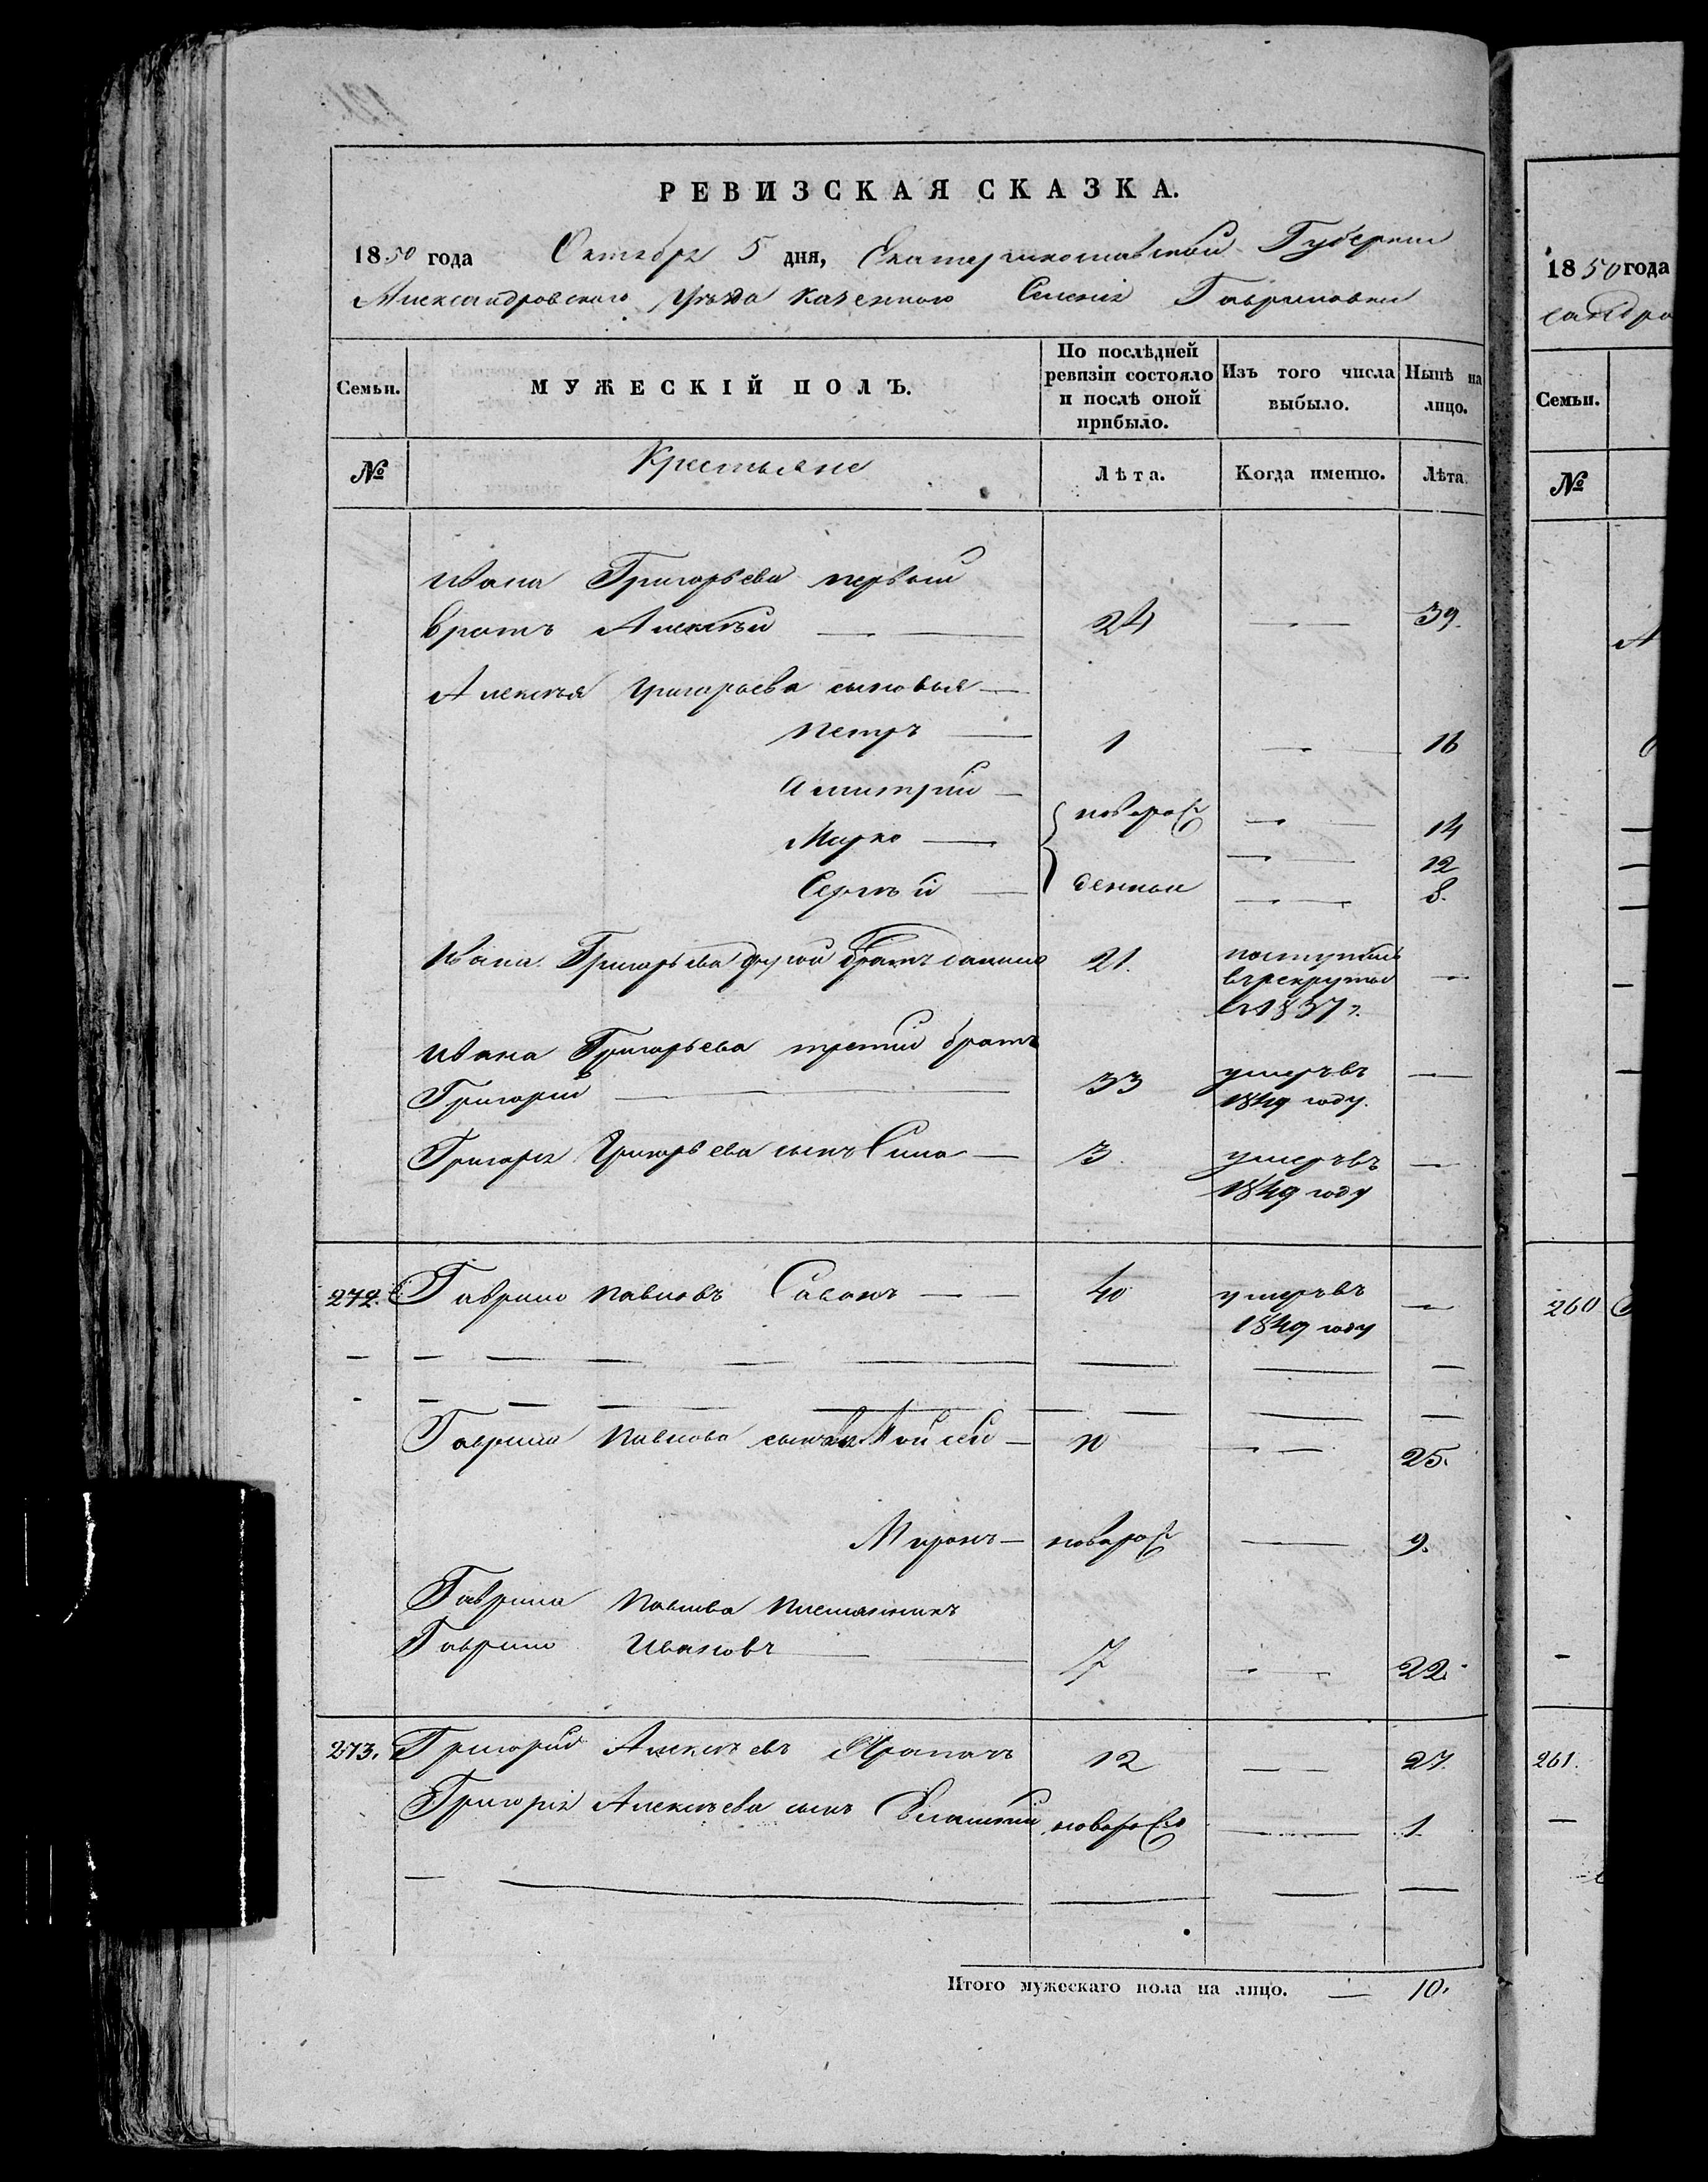 РЕВИЗСКАЯ СКАЗКА.
1850 года Октября 5 дня, Екатеринославской Губернии
Александровского Уѣзда Казенного Селенія Гавриловки
Семьи. МУЖЕСКІЙ ПОЛЪ. По послѣдней ревизіи состояло и послѣ оной прибыло. Изъ того числа выбыло. Нынѣ на лицо.
№ Крестьяне Лѣта. Когда именно. Лѣта.
Ивана Григорьева первый
братъ Алексѣй — 24 — 39.
Алексѣя Григорьева сыновья —
Петръ — 1 — 16
Дмитрій — новорож — 14
Марко — — 12
Сергѣй — денныи — 8.
Ивана Григорьева другой братъ 21. поступилъ
въ рекруты —
въ 1837 г.
Ивана Григорьева третий братъ
Григорий — 33 умеръ въ —
1849 году.
Григорія Григорьева сынъ Сила — 3. умеръ въ —
1849 году
272. Гаврило Павловъ — 40 умеръ въ —
1849 году
Гаврила Павлова Мойсей — 10 — 25.
Миронъ — новорож — 9.
Гаврила Павлова племянникъ
Гаврило Ивановъ — 7 — 22.
273. Григорий Алексѣевъ 12 — 27.
Григорія Алексѣева сынъ новорож — 1
Итого мужескаго пола на лицо. — 10.
1850 года
сандро
Семьи.
№
260
261.